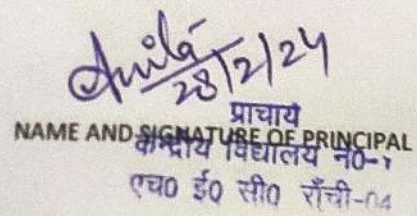 Anila
28/2/24
प्राचार्य
NAME AND SIGNATURE OF PRINCIPAL
केन्द्रीय विद्यालय नं०-१
एच० ई० सी० राँची-04